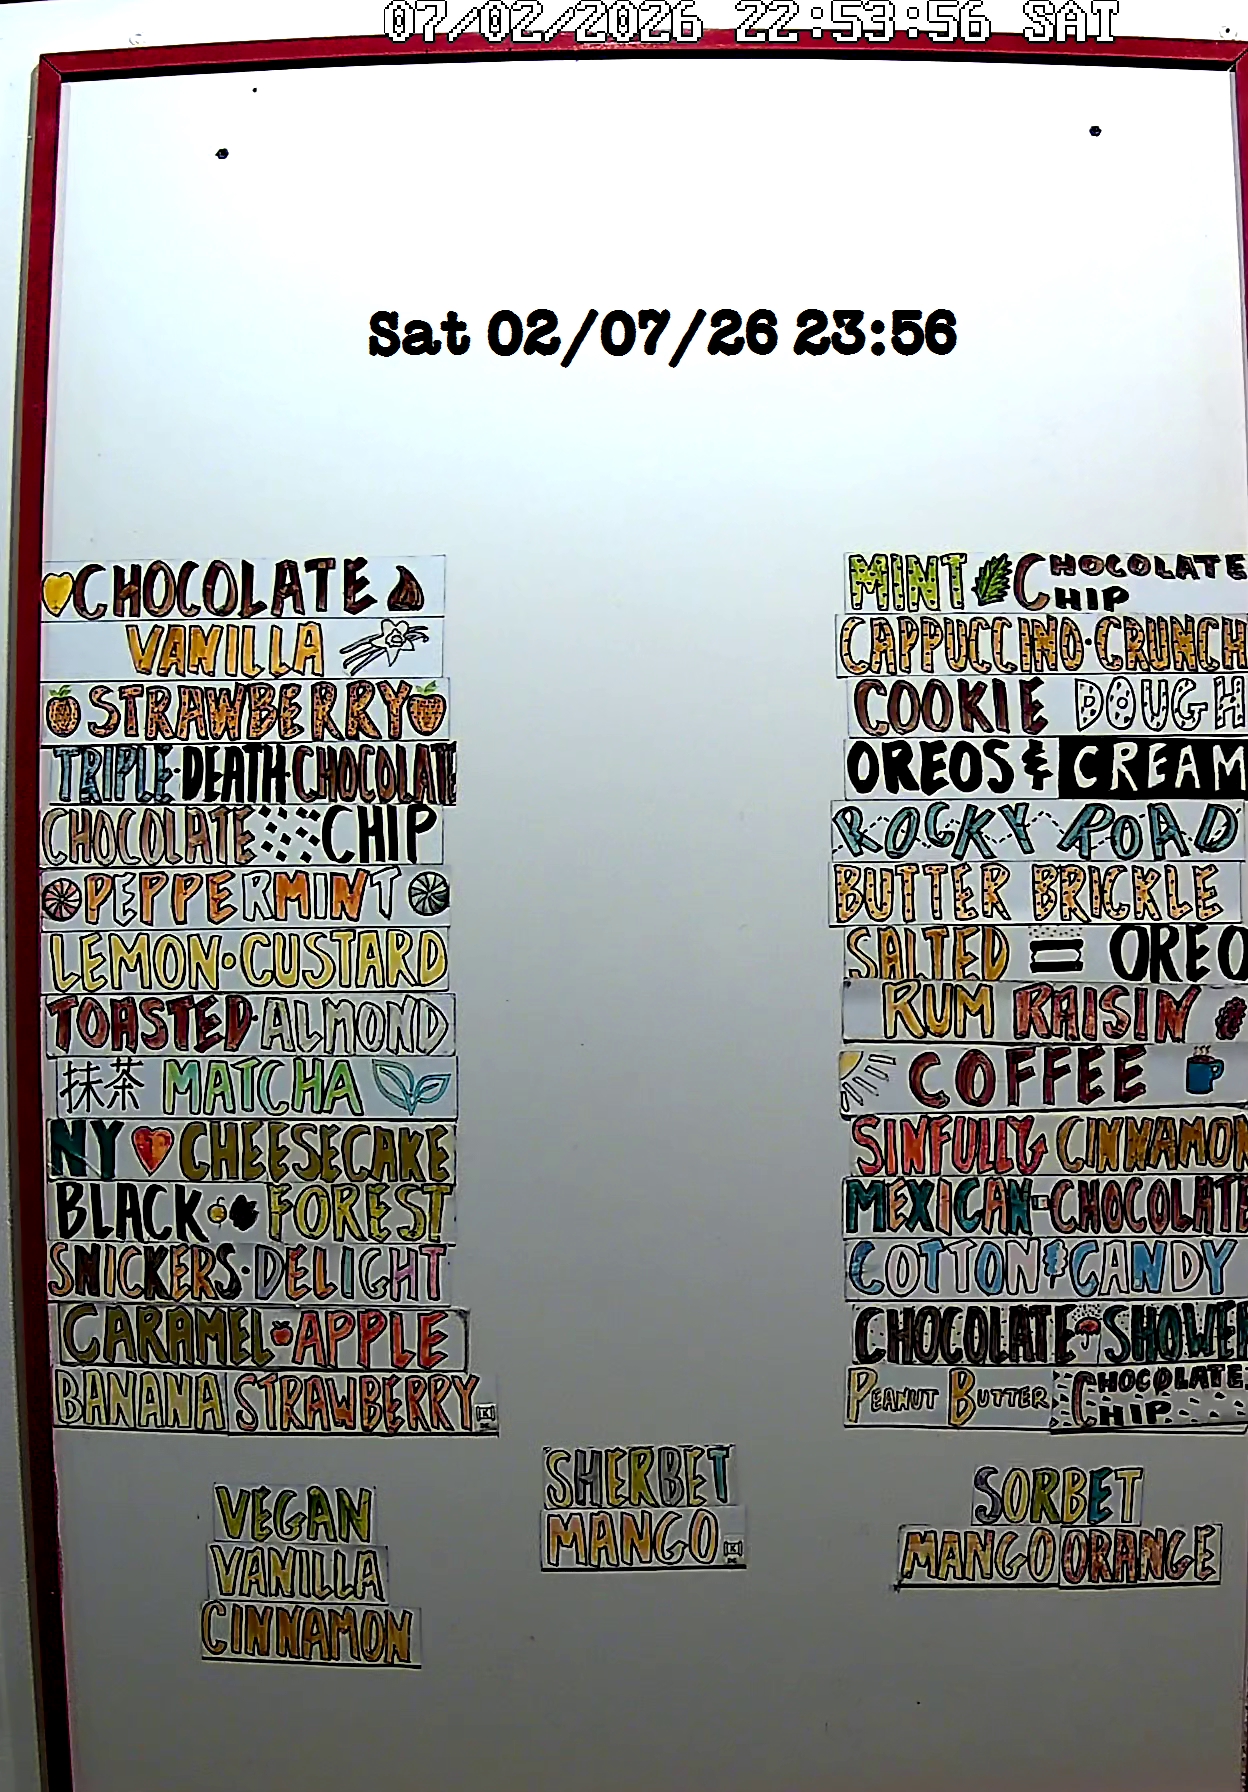 07/02/2026 22:53:56 SAT
Sat 02/07/26 23:56
CHOCOLATE
VANILLA
STRAWBERRY
TRIPLE·DEATH·CHOCOLATE
CHOCOLATE CHIP
PEPPERMINT
LEMON·CUSTARD
TOASTED·ALMOND
抹茶 MATCHA
NY CHEESECAKE
BLACK FOREST
SNICKERS·DELIGHT
CARAMEL APPLE
BANANA STRAWBERRY K
MINT CHOCOLATE CHIP
CAPPUCCINO·CRUNCH
COOKIE DOUGH
OREOS & CREAM
ROCKY ROAD
BUTTER BRICKLE
SALTED OREO
RUM RAISIN
COFFEE
SINFULLY CINNAMON
MEXICAN-CHOCOLATE
COTTON CANDY
CHOCOLATE SHOWER
PEANUT BUTTER CHOCOLATE CHIP
VEGAN
VANILLA
CINNAMON
SHERBET
MANGO K
SORBET
MANGO ORANGE